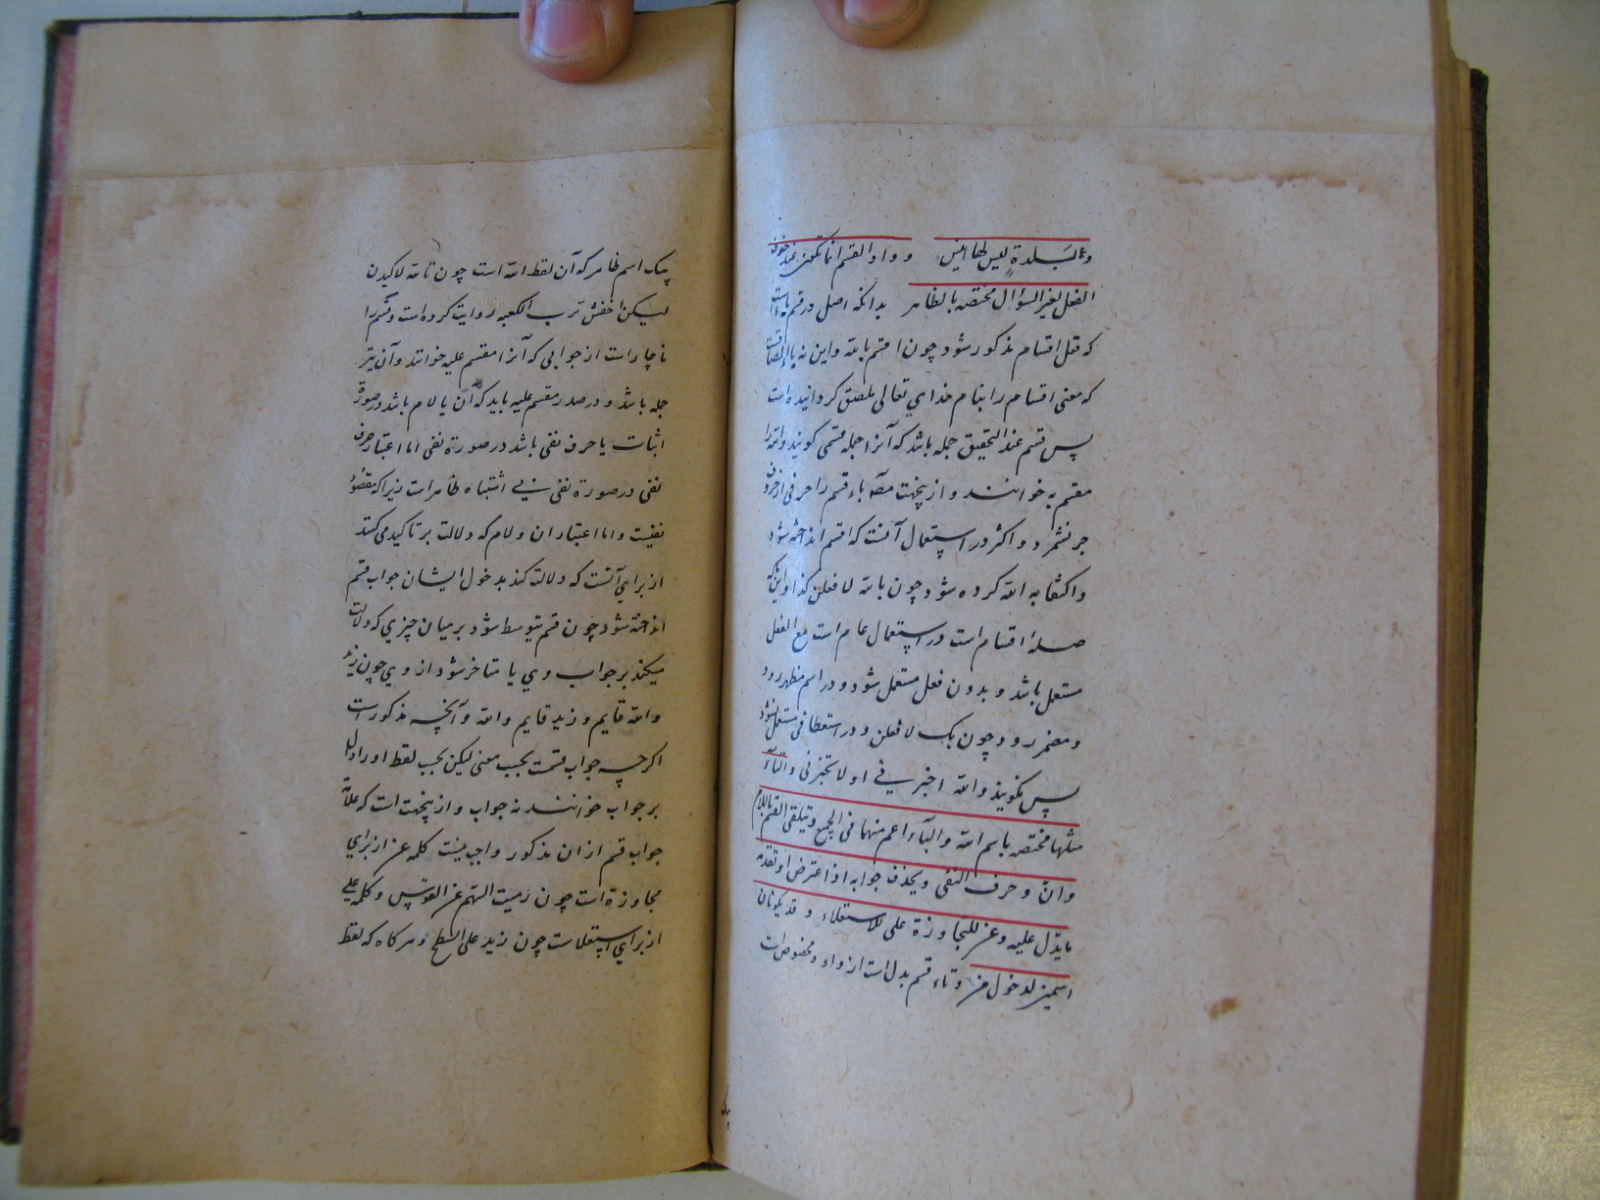 و بلدة ليس لها انيس و واو القسم انما تكون عند حذف
الفعل لغير السؤال مختصه بالظاهر بدانکه اصل در قسم باء است
که فعل اقسام مذکور شود چون اقسم بالله واین نه باء الصاقست
که معنی اقسام را بنام خدای تعالی ملصق کردانیده است
پس قسم عند التحقیق جمله باشد که آنرا جمله قسمی کویند والله را
مقسم به خوانند و ازینجهت باء قسم را حرفی از حروف
جر نشمرد و اکثر در استعمال آنست که اقسم انداخته شود
واکتفا به الله کرده شود چون بالله لا فعلن کذا واین که
صلهٔ اقسام است در استعمال عام است مع الفعل
مستعمل باشد و بدون فعل مستعمل شود و در اسم مظهر رود
و مضمر رود چون بک لا فعلن و در استعطافی مستعمل شود
پس بکویند والله اخبرنی او لا تخبرنی والتآء
مثلها مختصه باسم الله والبآء اعم منهما فی الجمیع و یتلقی القسم باللام
وان و حرف النفی و یحذف جوابه اذا اعترض او تقدمه
ما یدل علیه وعن للمجاوزة علی للاستعلاء و قد یکونان
اسمین لدخول من و تاء قسم بدل است از واو و مخصوص است
بیک اسم ظاهر که آن لفظ الله است چون تالله لاکیدن
لیکن اخفش ترب الکعبه روایت کرده است و قسم را
ناچار است از جوابی که آنرا مقسم علیه خوانند و آن نیز
جمله باشد و در صدر مقسم علیه باید که ان یا لام باشد در صورة
اثبات یا حرف نفی باشد در صورة نفی اما اعتبار حرف
نفی در صورة نفی بی اشتباه ظاهر است زیرا که مقصود
نفیست و اما اعتبار ان و لام که دلالت بر تاکید می کنند
از برای آنست که دلالت کند بدخول ایشان جواب قسم
انداخته شود چون قسم متوسط شود بر میان چیزی که دلالت
میکند بر جواب وی یا متاخر شود از وی چون زید
والله قایم و زید قایم والله و آنچه مذکور است
اکرچه جواب قسمت بحسب معنی لیکن بحسب لفظ او را دال
بر جواب خوانند نه جواب و ازینجهت است که علامة
جواب قسم از ان مذکور واجب نیست کلمه عن از برای
مجاوزة است چون رمیت السهم عن القوس و کلمه علی
از برای استعلاست چون زید علی السطح و هر کاه که لفظ